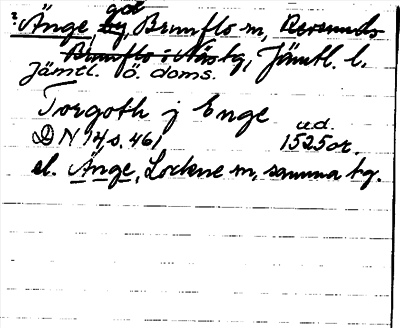 ? Änge, gd, Brunflo sn, Revsunds
Brunflo o. Näs tg, Jämtl. l.
Jämtl. ö. doms.
Torgoth j Enge
u.d.
DN 14, s. 461 1525 or.
el. Änge, Lockne sn, samma tg.